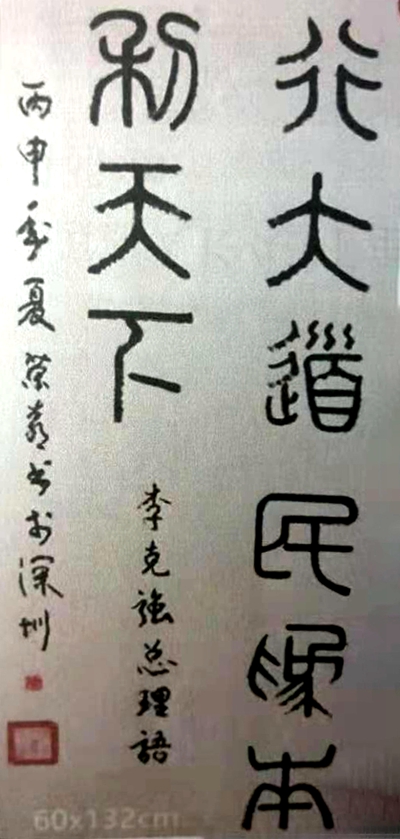 行大道民為本
利天下
李克強总理語
丙申季夏榮书於深圳
60x132cm